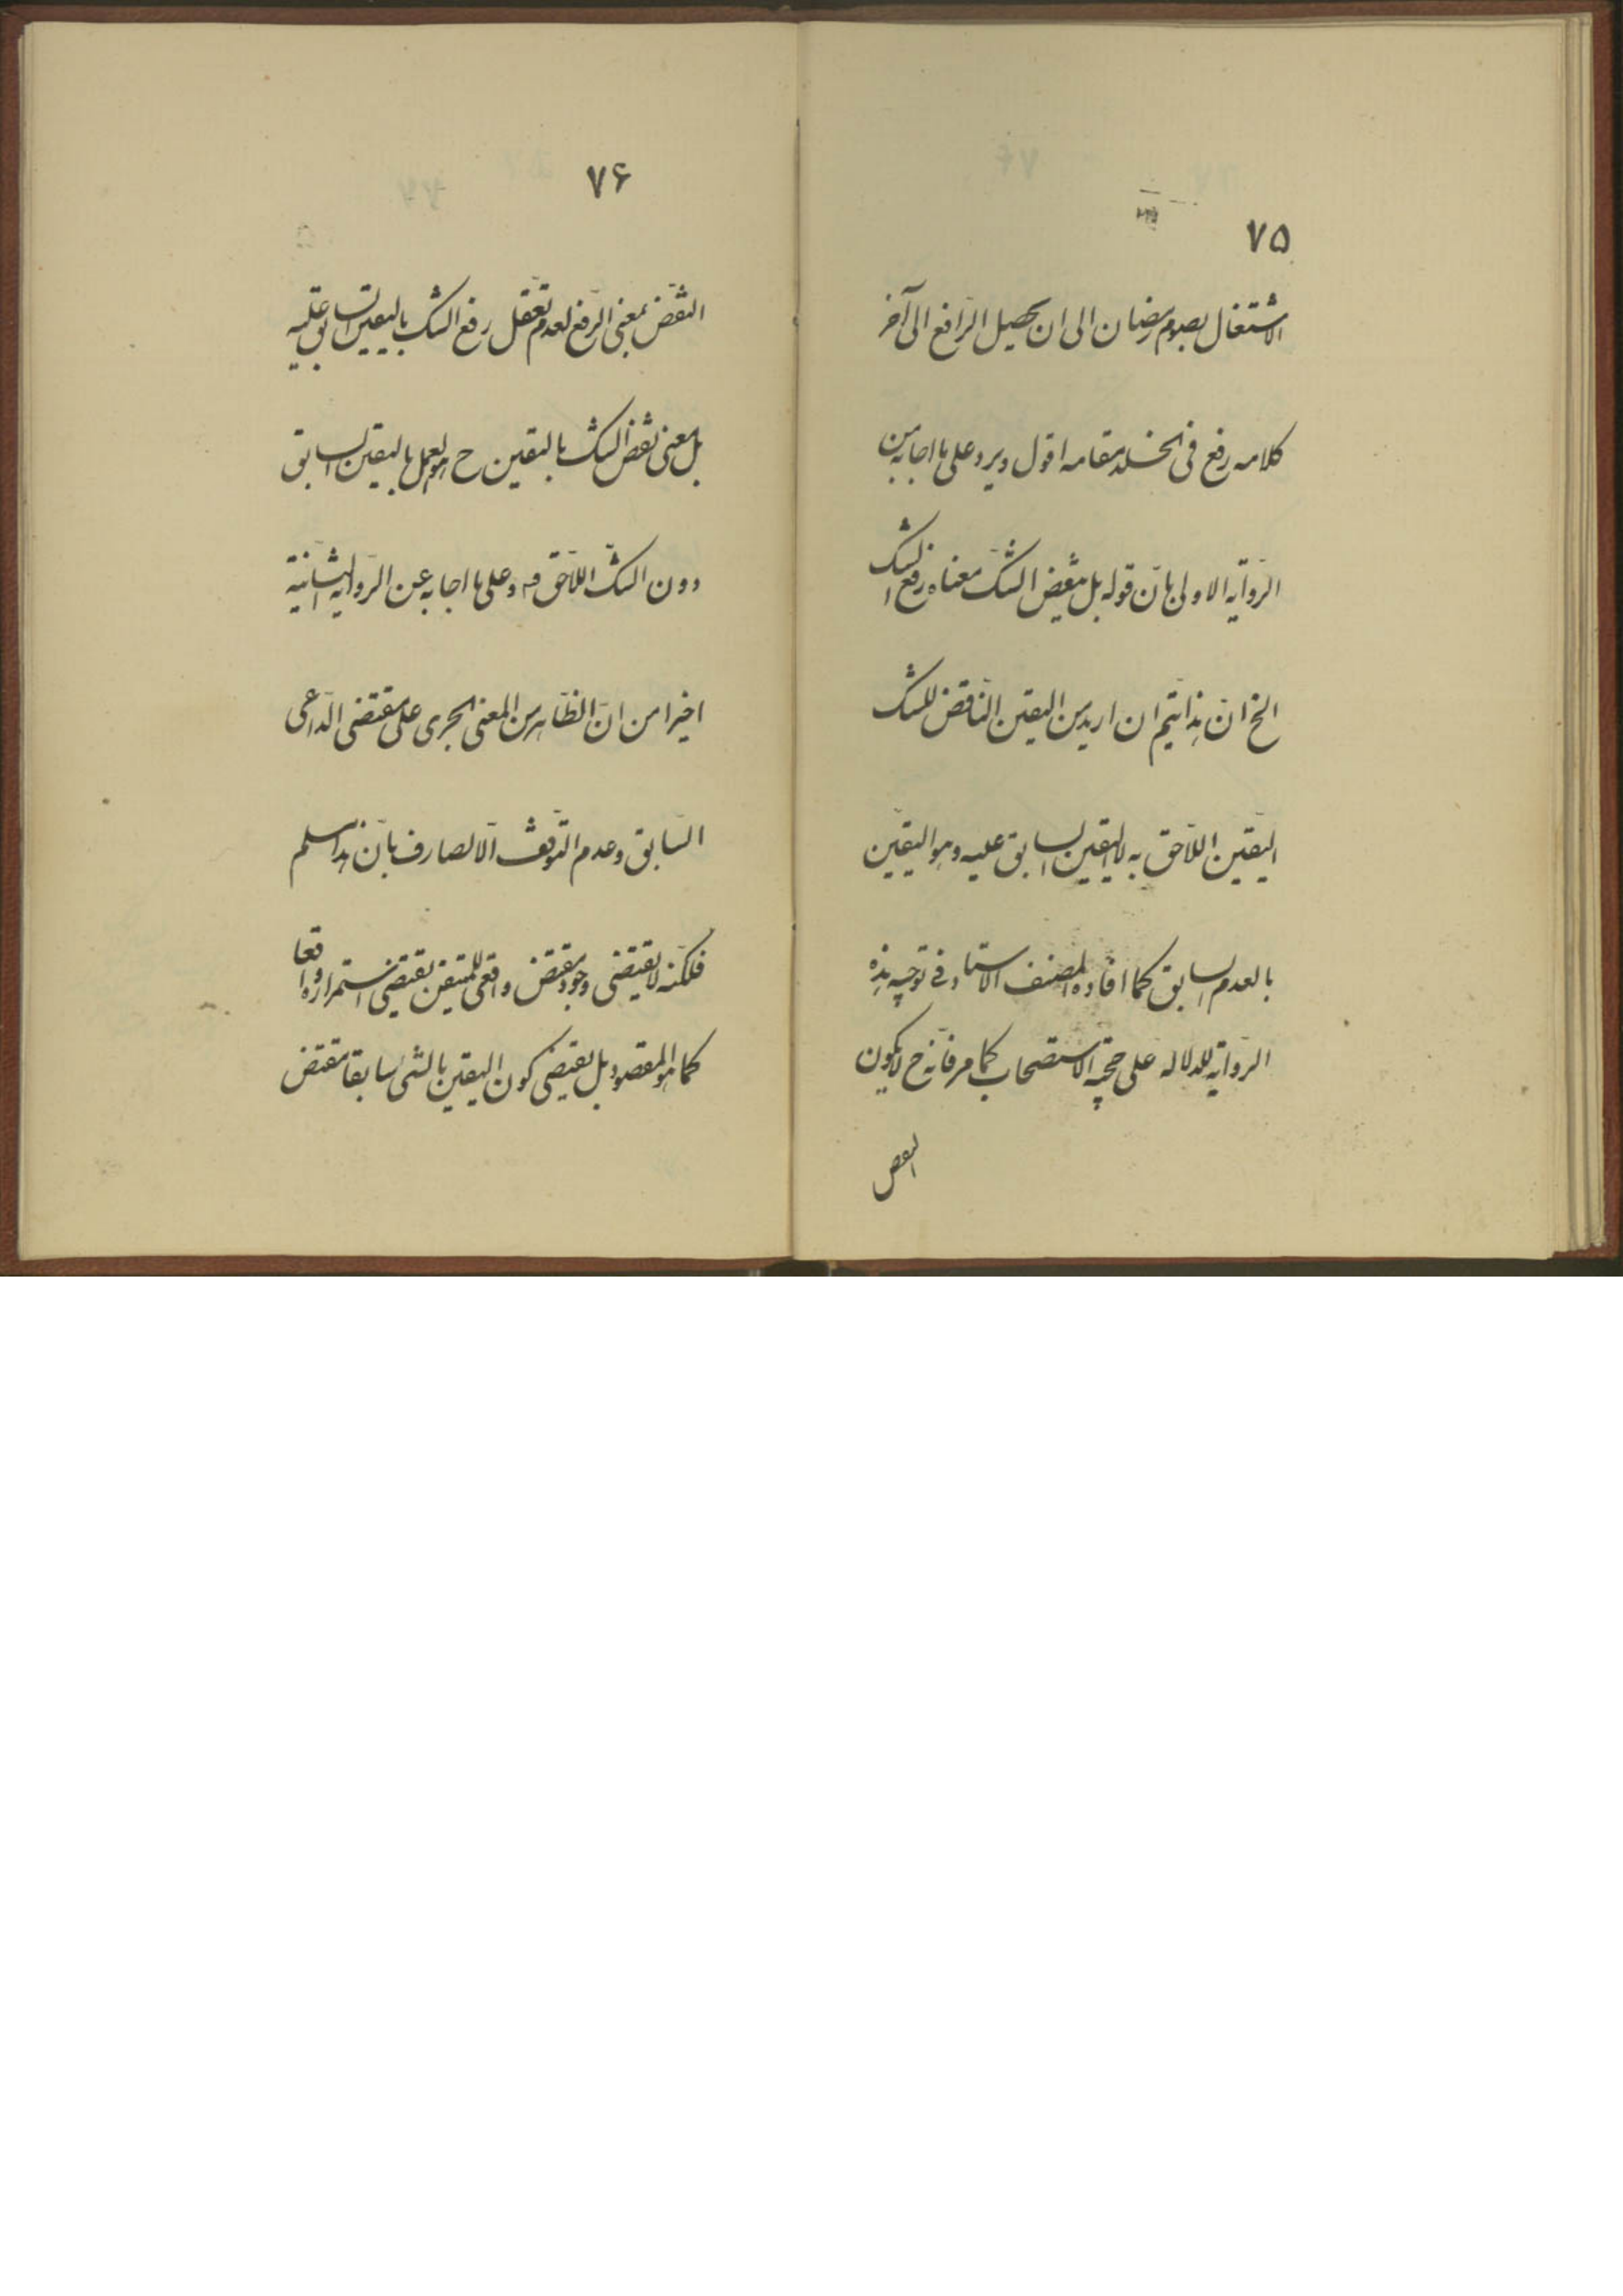 ۷۵
الاشتغال بصوم رمضان الی ان یحصل الرّافع الی آخر
کلامه رفع فی الخلد مقامه اقول و یرد علی ما اجاب به من
الرّوایة الاولی بانّ قوله بل ینقض الشکّ معناه رفع الشک
الخ انّ هذا یتمّ ان ارید من الیقین النّاقض للشک
الیقین اللّاحق به لا الیقین السابق علیه و هو الیقین
بالعدم السابق کما افاده المصنف الاستاد فی توجیه هذه
الرّوایة للدلالة علی حجّیة الاستصحاب کما مر فانّه ح لا یکون
النقض
۷۶
النّقض بمعنی الرّفع لعدم تعقّل رفع الشک بالیقین السّابق علیه
بل معنی نقض الشک بالیقین ح هو العمل بالیقین السابق
دون الشکّ اللّاحق فیه و علی ما اجاب به عن الرّوایة الثّانیة
اخیرا من انّ الظّاهر من المعنی الجری علی مقتضی الدّاعی
السّابق و عدم التّوقّف الّا لصارف بانّ هذا مسلم
فلکنّه لا یقتضی وجود مقتض واقعی للمتیقن یقتضی استمراره واقعا
کما هو المقصود بل یقتضی کون الیقین بالشی سابقا مقتض